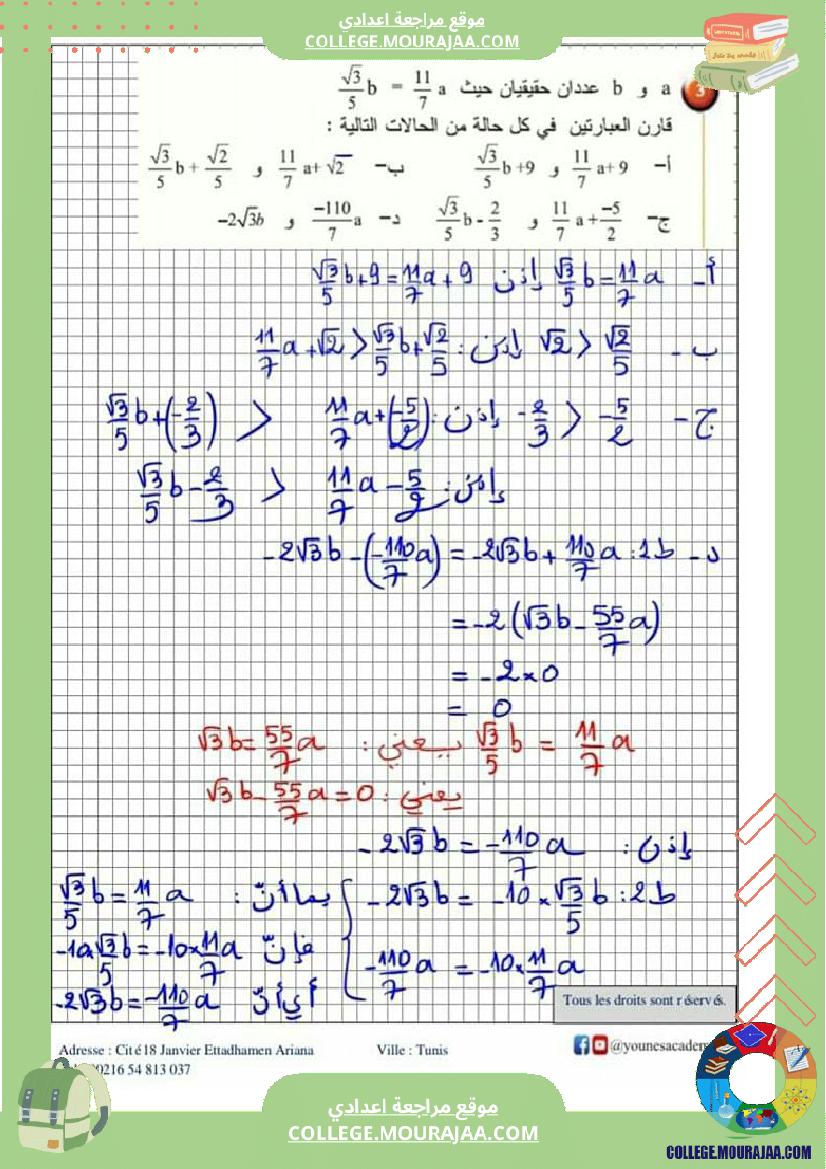 موقع مراجعة اعدادي
COLLEGE.MOURAJAA.COM
3 a و b عددان حقيقيان حيث √3/5 b = 11/7 a
قارن العبارتين في كل حالة من الحالات التالية :
أ– 11/7 a+ 9 و √3/5 b +9 ب– 11/7 a+ √2 و √3/5 b + √2/5
ج– 11/7 a + -5/2 و √3/5 b - 2/3 د– -110/7 a و -2√3b
أ- √3/5 b = 11/7 a إذن √3/5 b + 9 = 11/7 a + 9
ب - √2 > √2/5 إذن : 11/7 a + √2 > √3/5 b + √2/5
ج - -2/3 > -5/2 إذن : √3/5 b + (-2/3) > 11/7 a + (-5/2)
إذن : √3/5 b - 2/3 > 11/7 a - 5/2
د - ط1 : -2√3 b - (-110/7 a) = -2√3 b + 110/7 a
= -2 (√3 b - 55/7 a)
= -2 × 0
= 0
√3/5 b = 11/7 a يعني : √3 b = 55/7 a
يعني : √3 b - 55/7 a = 0
إذن : -2√3 b = -110/7 a
ط2 : -2√3 b = -10 × √3/5 b
-110/7 a = -10 × 11/7 a
بما أنّ : √3/5 b = 11/7 a
فإنّ -10 × √3/5 b = -10 × 11/7 a
أي أنّ -2√3 b = -110/7 a
Tous les droits sont réservés.
Adresse : Cité 18 Janvier Ettadhamen Ariana Ville : Tunis
0216 54 813 037
موقع مراجعة اعدادي
COLLEGE.MOURAJAA.COM
COLLEGE.MOURAJAA.COM